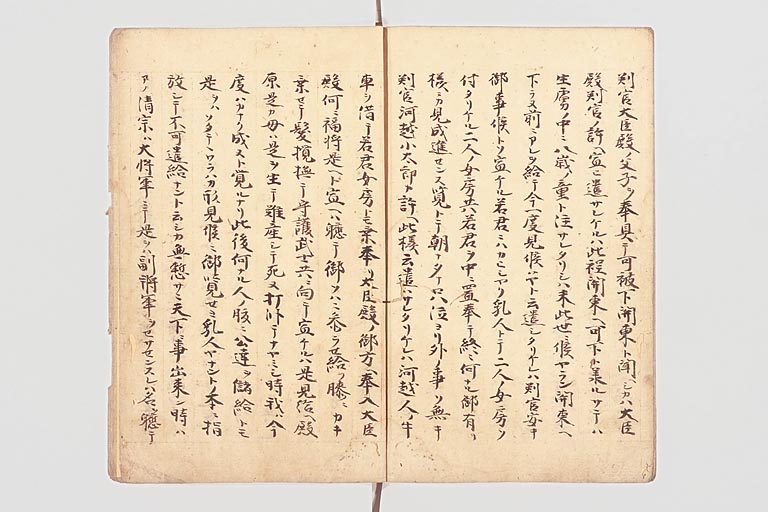 判官大臣殿ノ父子ヲ奉具テ可被下関東ト聞ヘシカハ大臣
殿判官ノ許ヘ宣ニ遣サレケルハ此程関東ヘ可下ト承ルサテハ
生虜ノ中ニ八歳ノ童ト注サレタリシハ未此世ニ候ヤラン関東ヘ
下ラヌ前ニアレヲ給テ今一度見候ハヤト云遣シタリケレハ判官安キ
御事候トソ宣ケル若君ニハ乳人トテ二人ノ女房ヲ
付タリケル二人ノ女房共ハ若君ヲ中ニ置奉テ終ニ何ナル御有
様ニカ見成進センスト覚トテ朝ナタナ只泣ヨリ外ノ事ソ無キ
判官河越小太郎カ許ヘ此様ヲ云遣ハサレタリケレハ河越人ノ牛
車ヲ借テ若君女房トモ乗奉リ大臣殿ノ御方ヘ奉入大臣
殿何ニ福将是ヘト宣ヘハ軈テ御ソハニ参ラセ給フ膝ニカキ
乗セテ髪掻撫テ守護武士共ニ向テ宣ケルハ是見給ヘ殿
原是カ母ハ是ヲ生テ難産シテ死ヌ打臥テナヤミシ時我ハ今
度ハカナク成ヌト覚ルナリ此後何ナル人ノ腹ニ公達ヲ儲給トモ
是ヲハソタテヽワラハカ形見候ニ御覧セヨ乳人ヤナントノ本ニ指
放シテ不可遣給ナント云シカ無慙サニ天下ニ事出来ン時ハ
アノ清宗ハ大将軍ニテ是ヲハ副将軍ヲセサセンスレハ名ハ軈テ